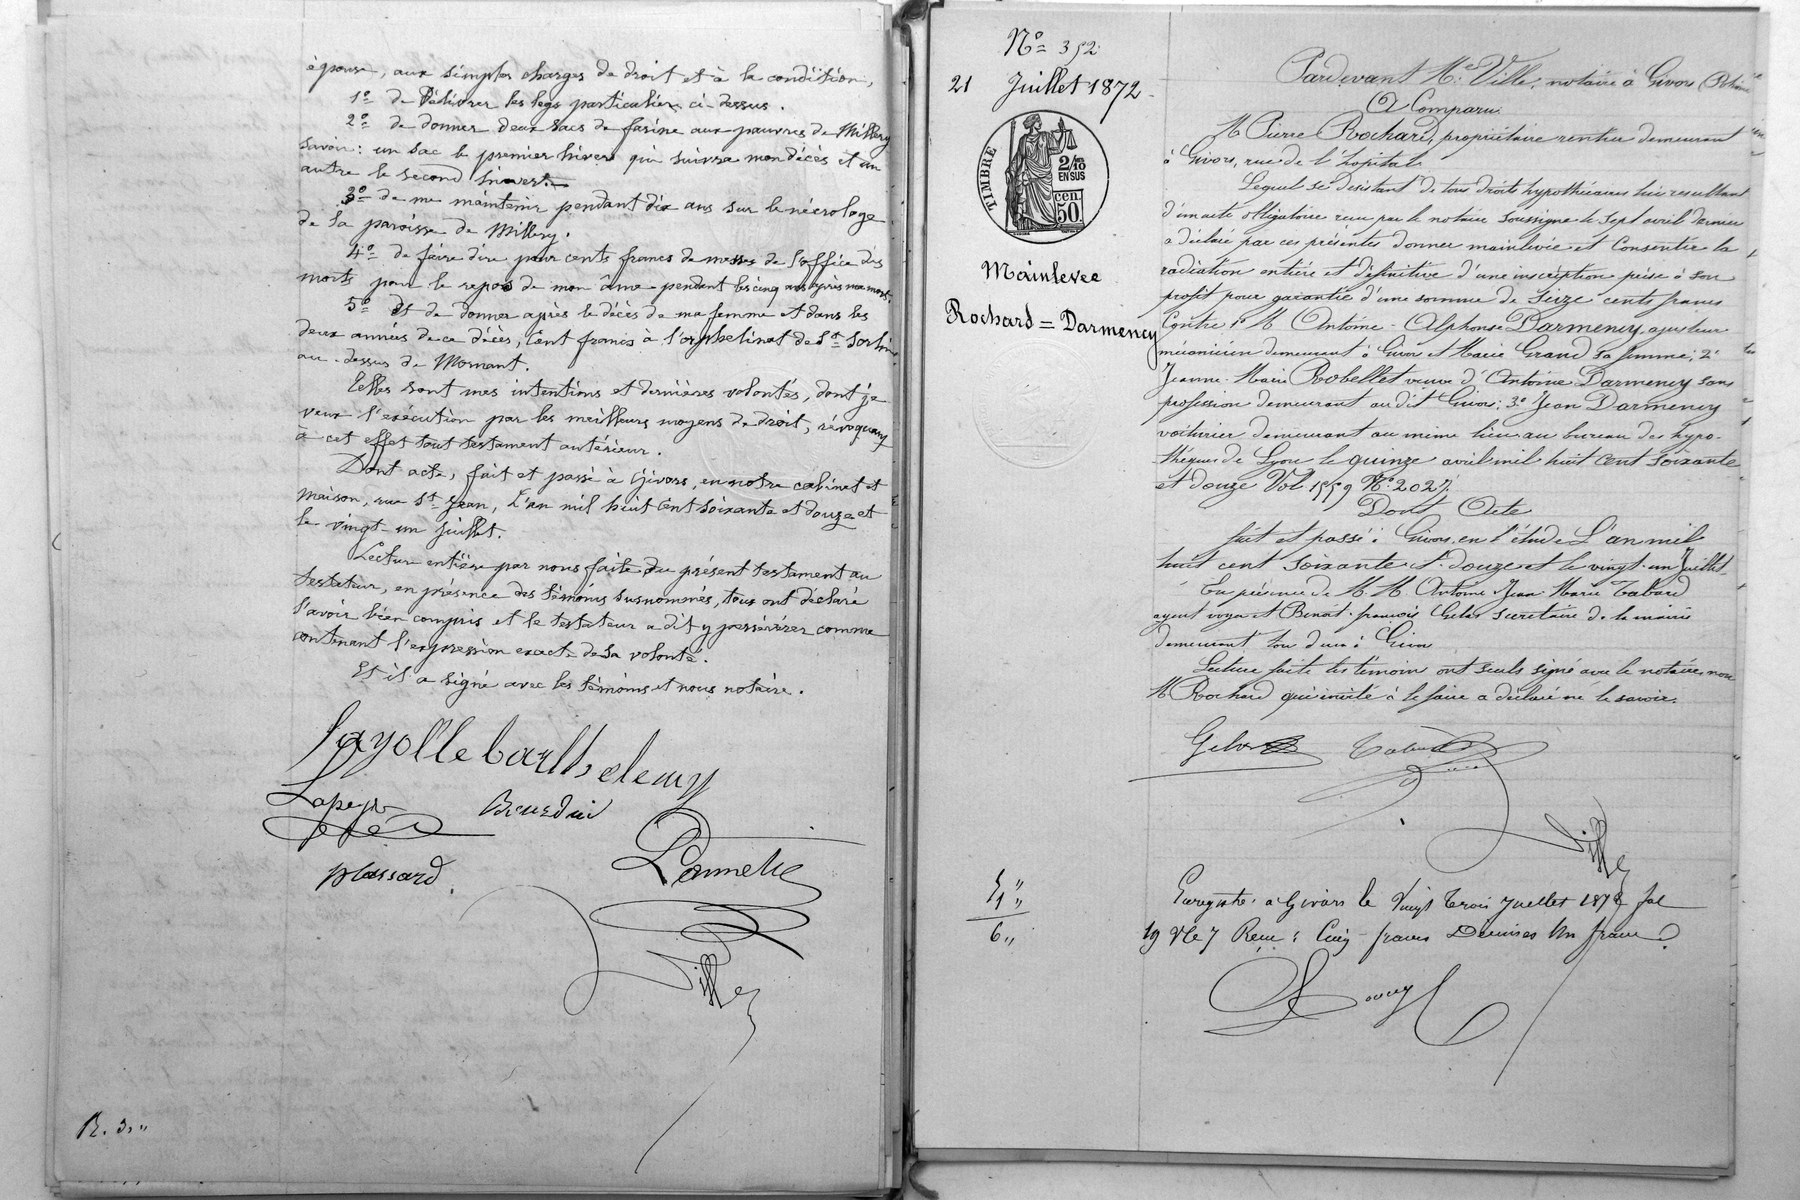 épouse, aux simples charges de droit et à la condition,
1º de délivrer les legs particuliers ci-dessus.
2º de donner deux sacs de farine aux pauvres de Millery
savoir: un sac le premier hiver qui suivra mon décès et un
autre le second hiver.
3º de me maintenir pendant dix ans sur le nécrologe
de la paroisse de Millery.
4º de faire dire pour cents francs de messes de l'office des
morts pour le repos de mon âme pendant les cinq ans après ma mort.
5º Et de donner après le décès de ma femme et dans les
deux années de ce décès, Cent francs à l'orphelinat de St Sorlin
au-dessus de Mornant.
Telles sont mes intentions et dernières volontés, dont je
veux l'exécution par les meilleurs moyens de droit, révoquant
à cet effet tout testament antérieur.
Dont acte, fait et passé à Givors, en notre cabinet et
maison, rue St Jean, L'an mil huit cent soixante et douze et
le vingt-un juillet.
Lecture entière par nous faite du présent testament au
testateur, en présence des témoins susnommés, tous ont déclaré
l'avoir bien compris et le testateur a dit y persévérer comme
contenant l'expression exacte de sa volonté.
Et il a signé avec les témoins et nous notaire.
fayolle barthelemy
Plassard
Ville
R. 3,"
Nº 352
21 Juillet 1872
TIMBRE
2/10 EN SUS
50 cen.
Mainlevée
Rochard = Darmency
Pardevant Me Ville, notaire à Givors (Rhône
A Comparu
M Pierre Rochard, propriétaire rentier demeurant
à Givors, rue de l'hopital.
Lequel se désistant de tous droits hypothécaires lui résultant
d'un acte obligatoire reçu par le notaire soussigné le sept avril dernier
a déclaré par ces présentes donner mainlevée et Consentir la
radiation entière et définitive d'une inscription prise à son
profit pour garantie d'une somme de Seize cents francs
Contre 1º M Antoine-Alphonse Darmency, ajusteur
mécanicien demeurant à Givors et Marie Grand sa femme; 2º
Jeanne-Marie Robellet veuve d'Antoine Darmency sans
profession demeurant audit Givors; 3º Jean Darmency
voiturier demeurant au même lieu au bureau des hypo-
thèques de Lyon le quinze avril mil huit cent soixante
et douze Vol. 1559 Nº 2027.
Dont Acte
fait et passé à Givors, en l'étude L'an mil
huit cent soixante et douze et le vingt-un Juillet
En présence de M.M Antoine Jean Marie Tabard
agent voyer et Benoît-françois Gelas secrétaire de la mairie
demeurant tous deux à Givors
Lecture faite les témoins ont seuls signé avec le notaire, non
M Rochard qui invité à le faire a déclaré ne le savoir.
Gelas Tabard
Ville
5 "
1 "
6 "
Enregistré à Givors le Vingt trois Juillet 1872 fol
19 Vº C 7 Reçu: Cinq francs Décimes Un franc